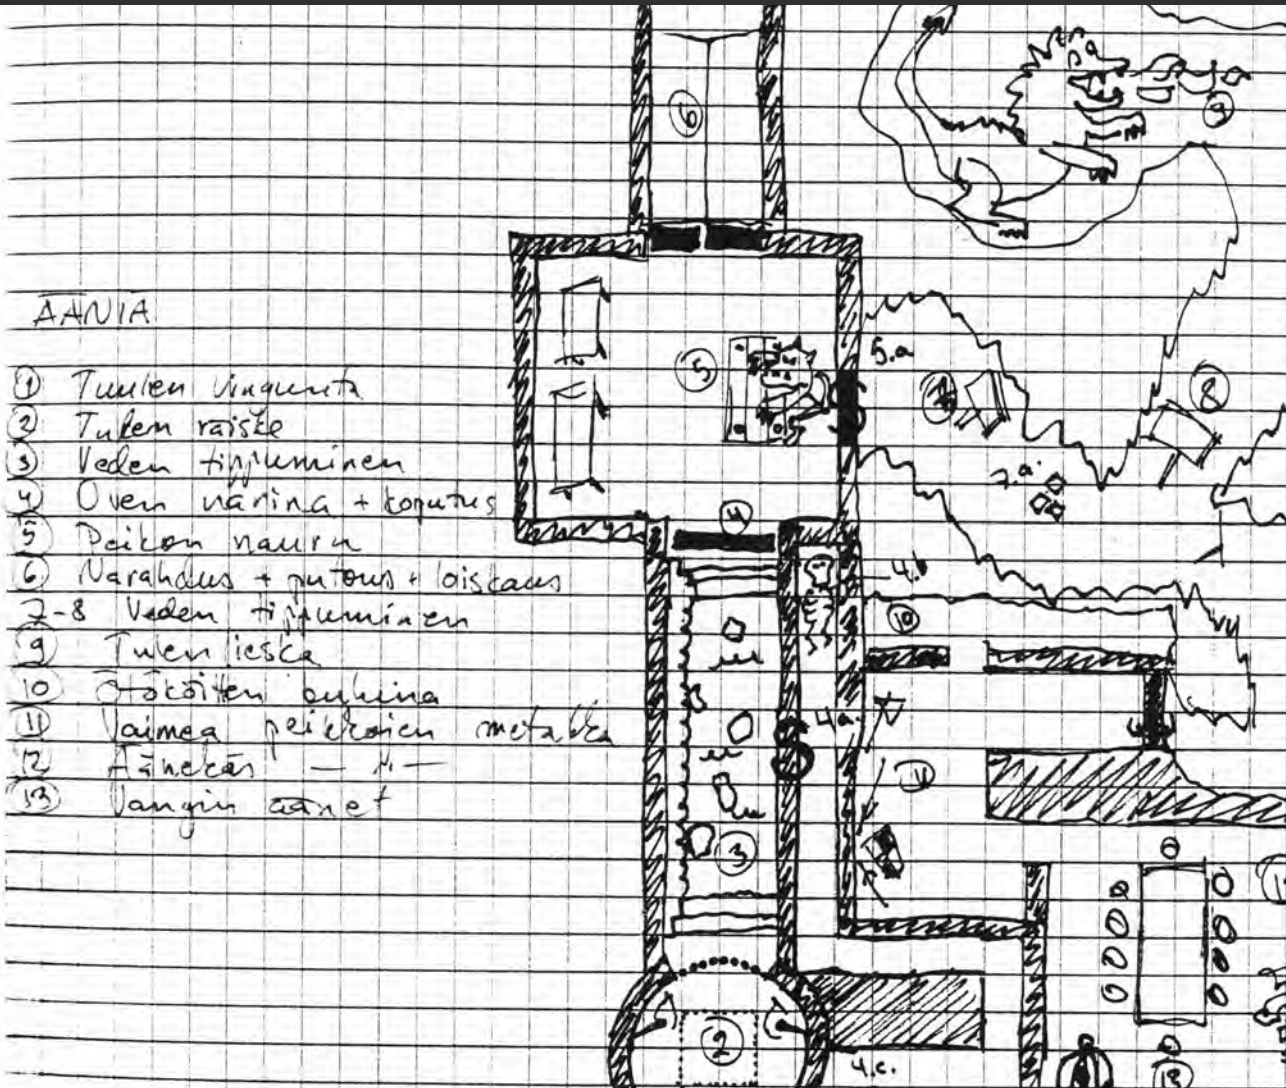 ÄÄNIÄ
① Tuulen vingunta
② Tulen räiske
③ Veden tippuminen
④ Oven narina + koputus
⑤ Peikon nauru
⑥ Narahdus + putous + loiskaus
7-8 Veden tippuminen
⑨ Tulen
⑩ Ötököitten
⑪ Vaimea peikkojen metakka
⑫ Äänekäs — " —
⑬ Vangin äänet
⑥
⑨
5.a
⑤
⑧
7.a
④
4.b
⑩
4a.
③
②
4.c.